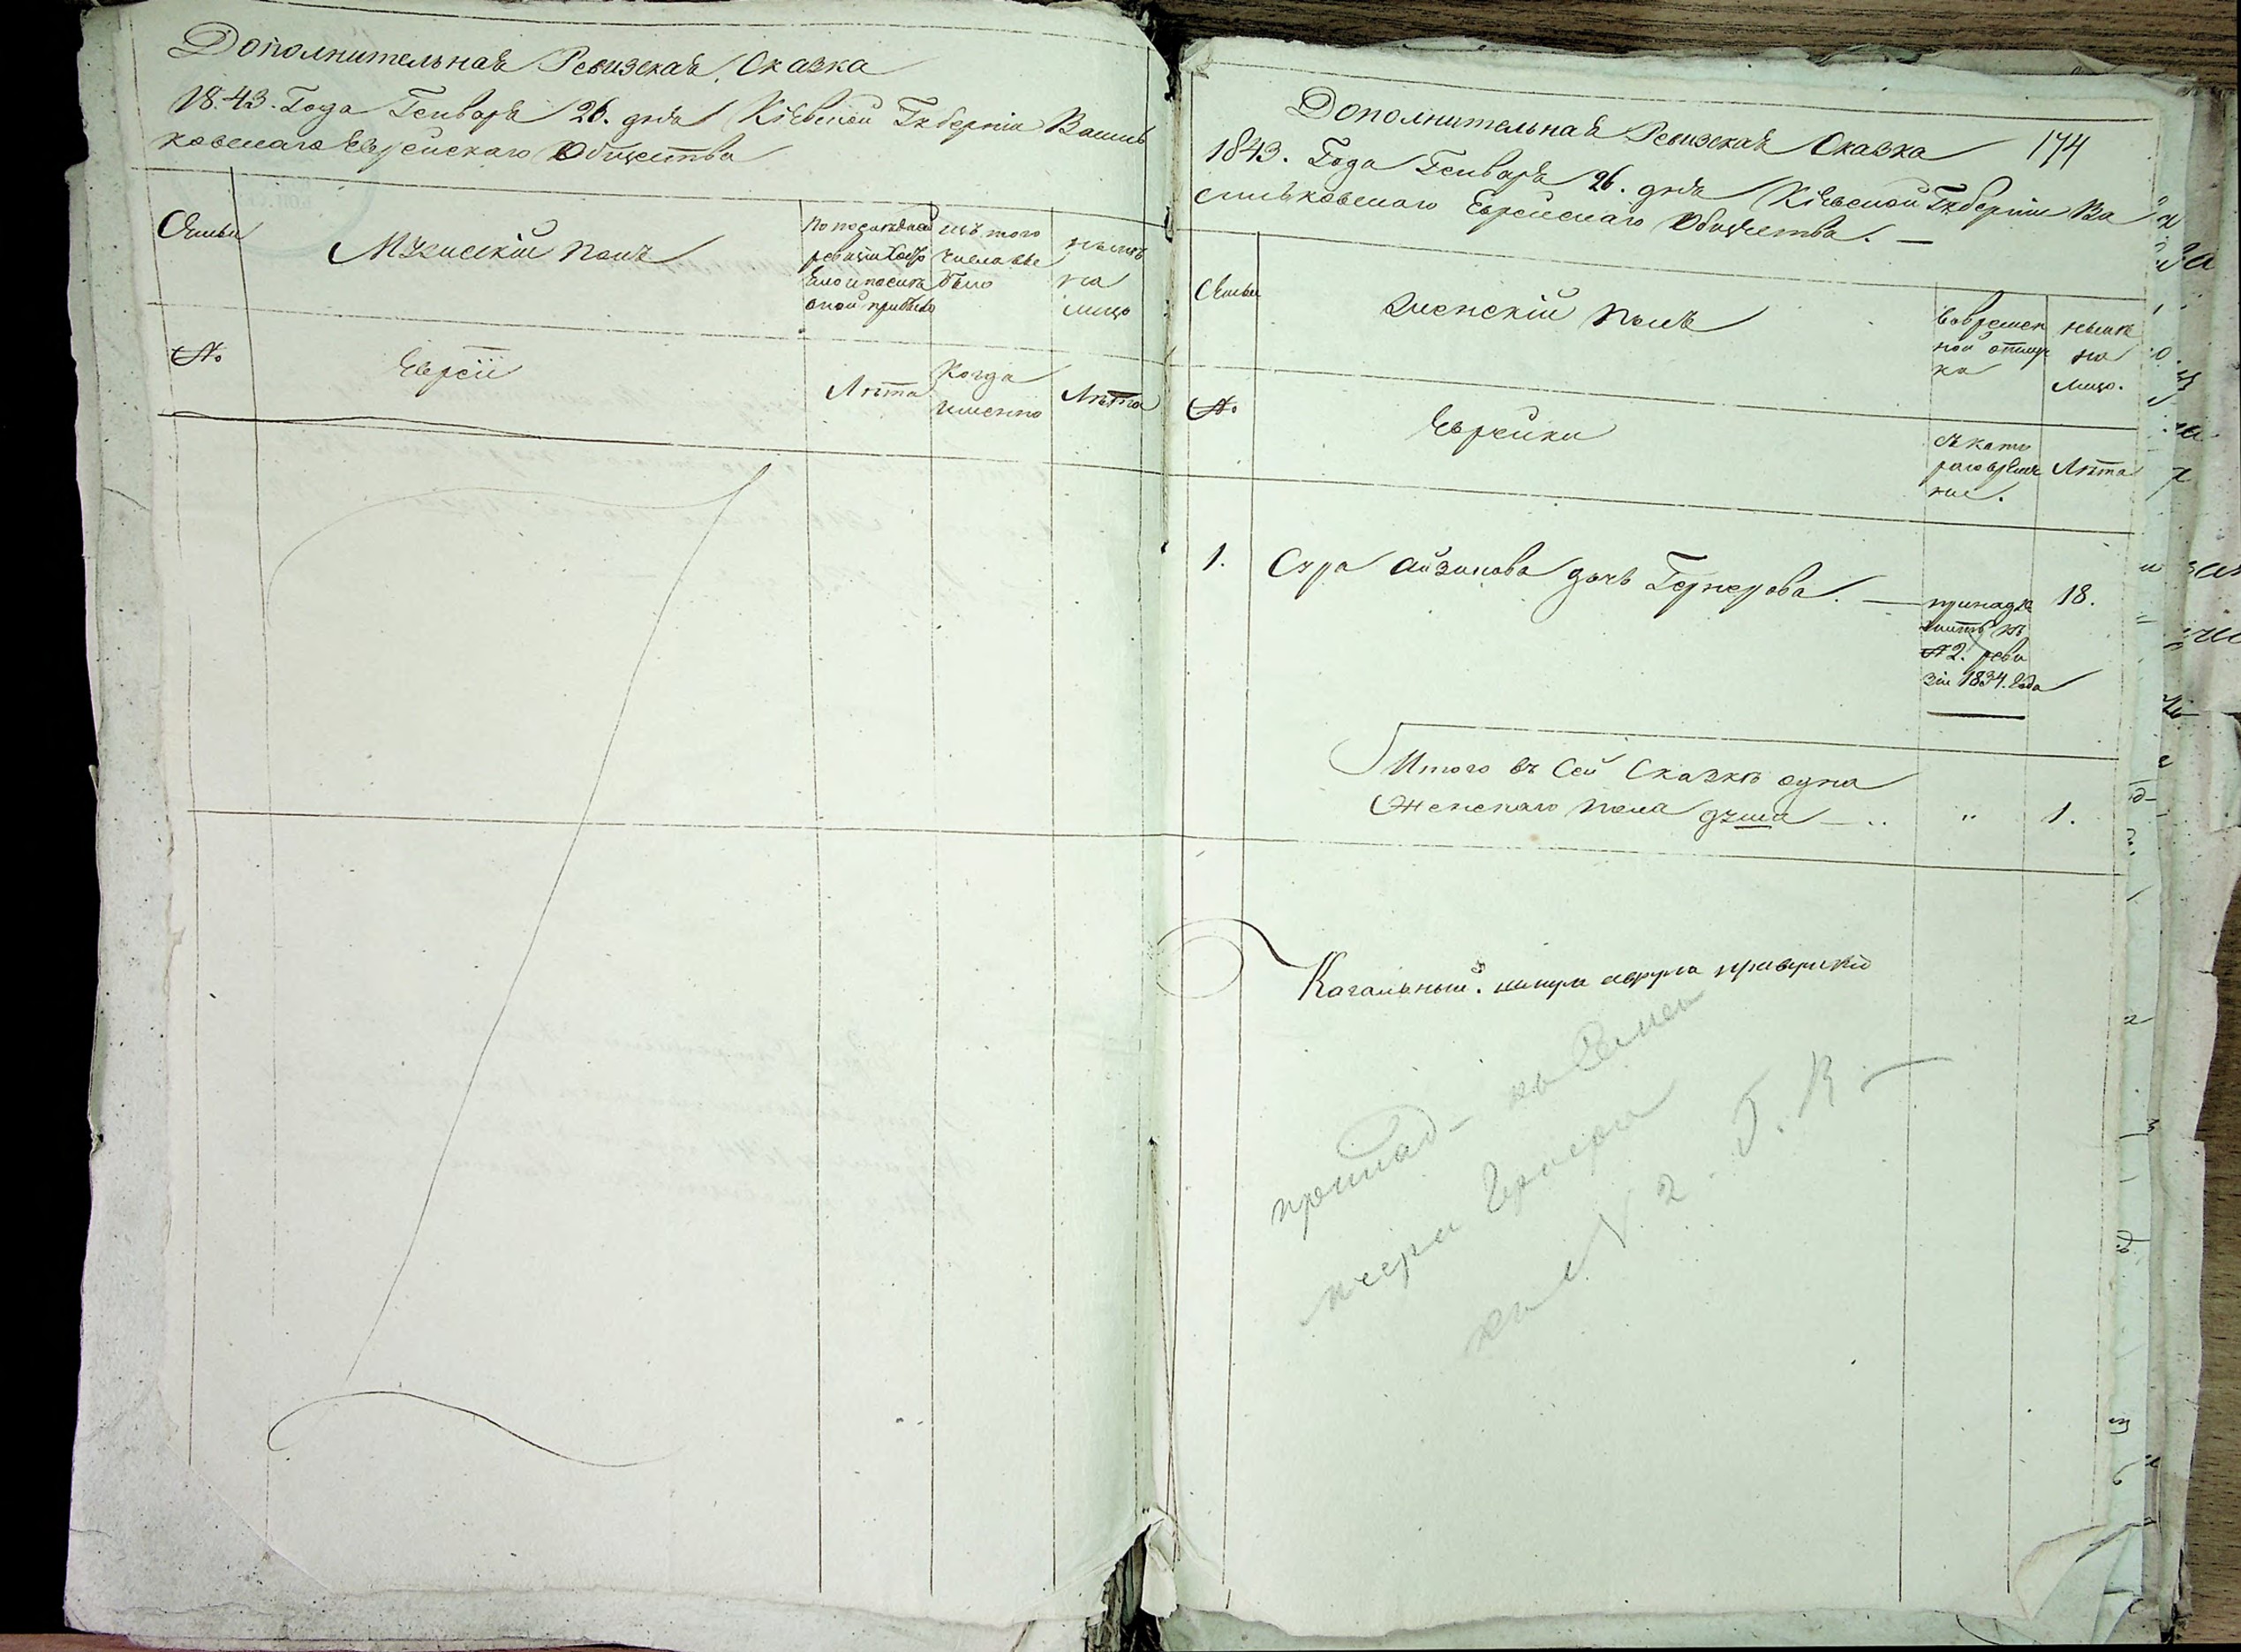 Дополнительная Ревизская Сказка
1843. Года Генваря 26. дня Кіевской Губерніи Василь
ковскаго Еврейскаго Общества
Семьи
Мужескій полъ
По последней
ревизіи состо
яло и после
оной прибыло
изъ того
числа вы
было
ныне
на
лицо
№
Евреи
Лета
Когда
именно
Лета
Дополнительная Ревизская Сказка
174
1843. Года Генваря 26. дня Кіевской Губерніи Ва
сильковскаго Еврейскаго Общества. —
Семьи
Женскій полъ
Во времен
ной отлуч
ке
ныне
на
лицо.
№
Еврейки
съ кото
раго време
ни.
Лета
1.
Сура Айзикова дочь Гернерова. —
принадле
житъ къ
№ 2. реви
зіи 1834. Года
18.
Итого въ Сей Сказке одна
Женскаго пола душа — ..
"
1.
Кагальный.
къ № 2